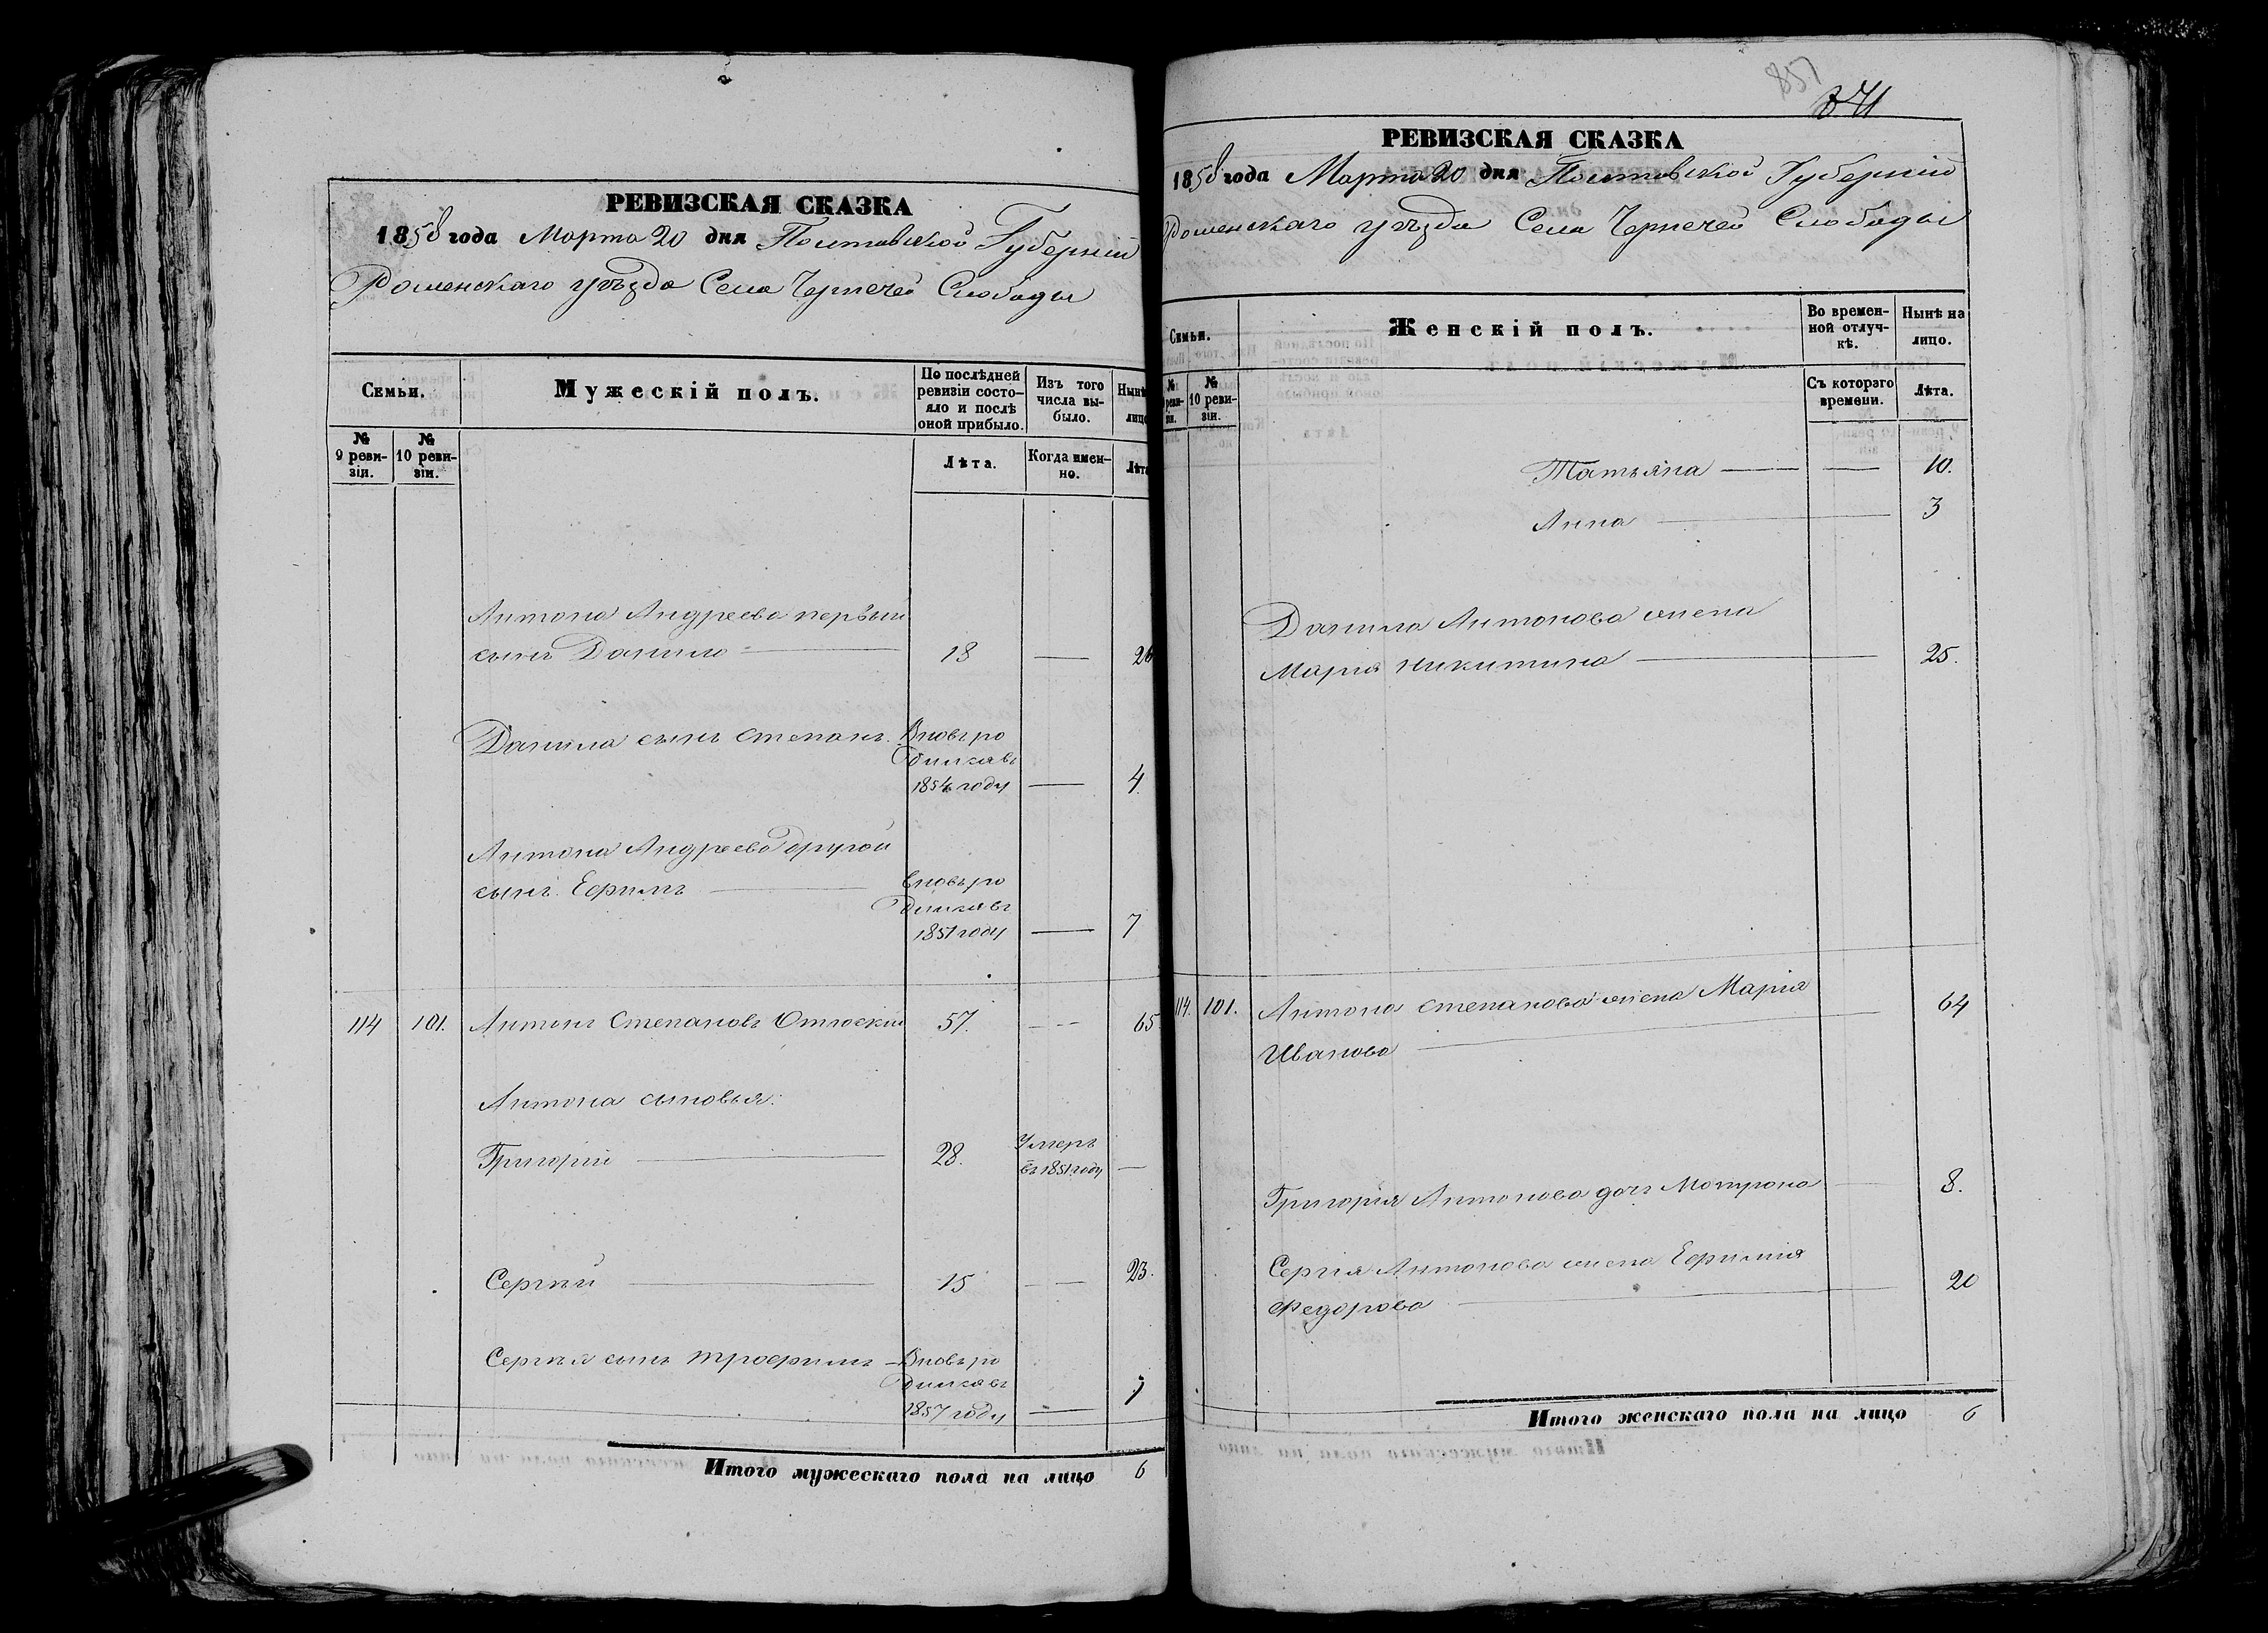 РЕВИЗСКАЯ СКАЗКА
1858 года Марта 20 дня Полтавской Губерніи
Роменскаго уѣзда Села Чернечей Слободы
Семьи.
Мужескій полъ.
По послѣдней ревизіи состояло и послѣ оной прибыло.
Изъ того числа выбыло.
Нынѣ
лицо
№ 9 ревизіи.
№ 10 ревизіи.
Лѣта.
Когда именно.
Лѣта
Антона Андреева первый
сынъ Данило 18 — 26
Данила сынъ Степанъ. Вновь ро
дился въ
1854 году — 4
Антона Андреева другой
сынъ Ефимъ вновь ро
дился въ
1851 году — 7
114 101. Антонъ Степановъ 57. 65
Антона сыновья:
Григорій 28. Умеръ
въ 1851 году —
Сергій 15 — 23.
Сергія сынъ Трофимъ — Вновь ро
дился въ
1857 году — 1
Итого мужескаго пола на лицо 6
851
РЕВИЗСКАЯ СКАЗКА
1858 года Марта 20 дня Полтавской Губерніи
Роменскаго уѣзда Села Чернечей Слободы
Семьи.
Женскій полъ.
Во временной отлучкѣ.
Нынѣ на лицо.
№ ревизіи.
№ 10 ревизіи.
Съ котораго времени.
Лѣта.
Татьяна — — 10.
Анна — 3
Данила Антонова жена
Марія Никитина — 25.
114. 101. Антона Степанова жена Марія
Иванова — 64
Григорія Антонова дочь Мотрона — 8.
Сергія Антонова жена Ефимія
Федорова — 20
Итого женскаго пола на лицо 6